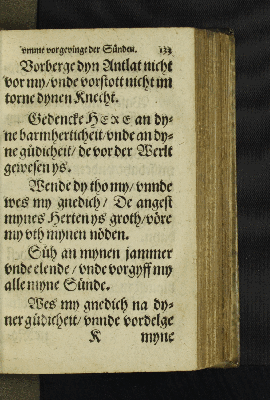 vmme vorgevinge der Sünden. 133
Vorberge dyn Antlat nicht
vor my/vnde vorstott nicht im
torne dynen Knecht.
Gedencke HERE an dy-
ne barmherticheit/vnde an dy-
ne güdicheit/de vor der Werlt
gewesen ys.
Wende dy tho my/vnnde
wes my gnedich/ De angest
mynes Herten ys groth/vöre
my vth mynen nöden.
Süh an mynen jammer
vnde elende/vnde vorgyff my
alle myne Sünde.
Wes my gnedich na dy-
ner güdicheit/vnnde vordelge
K myne